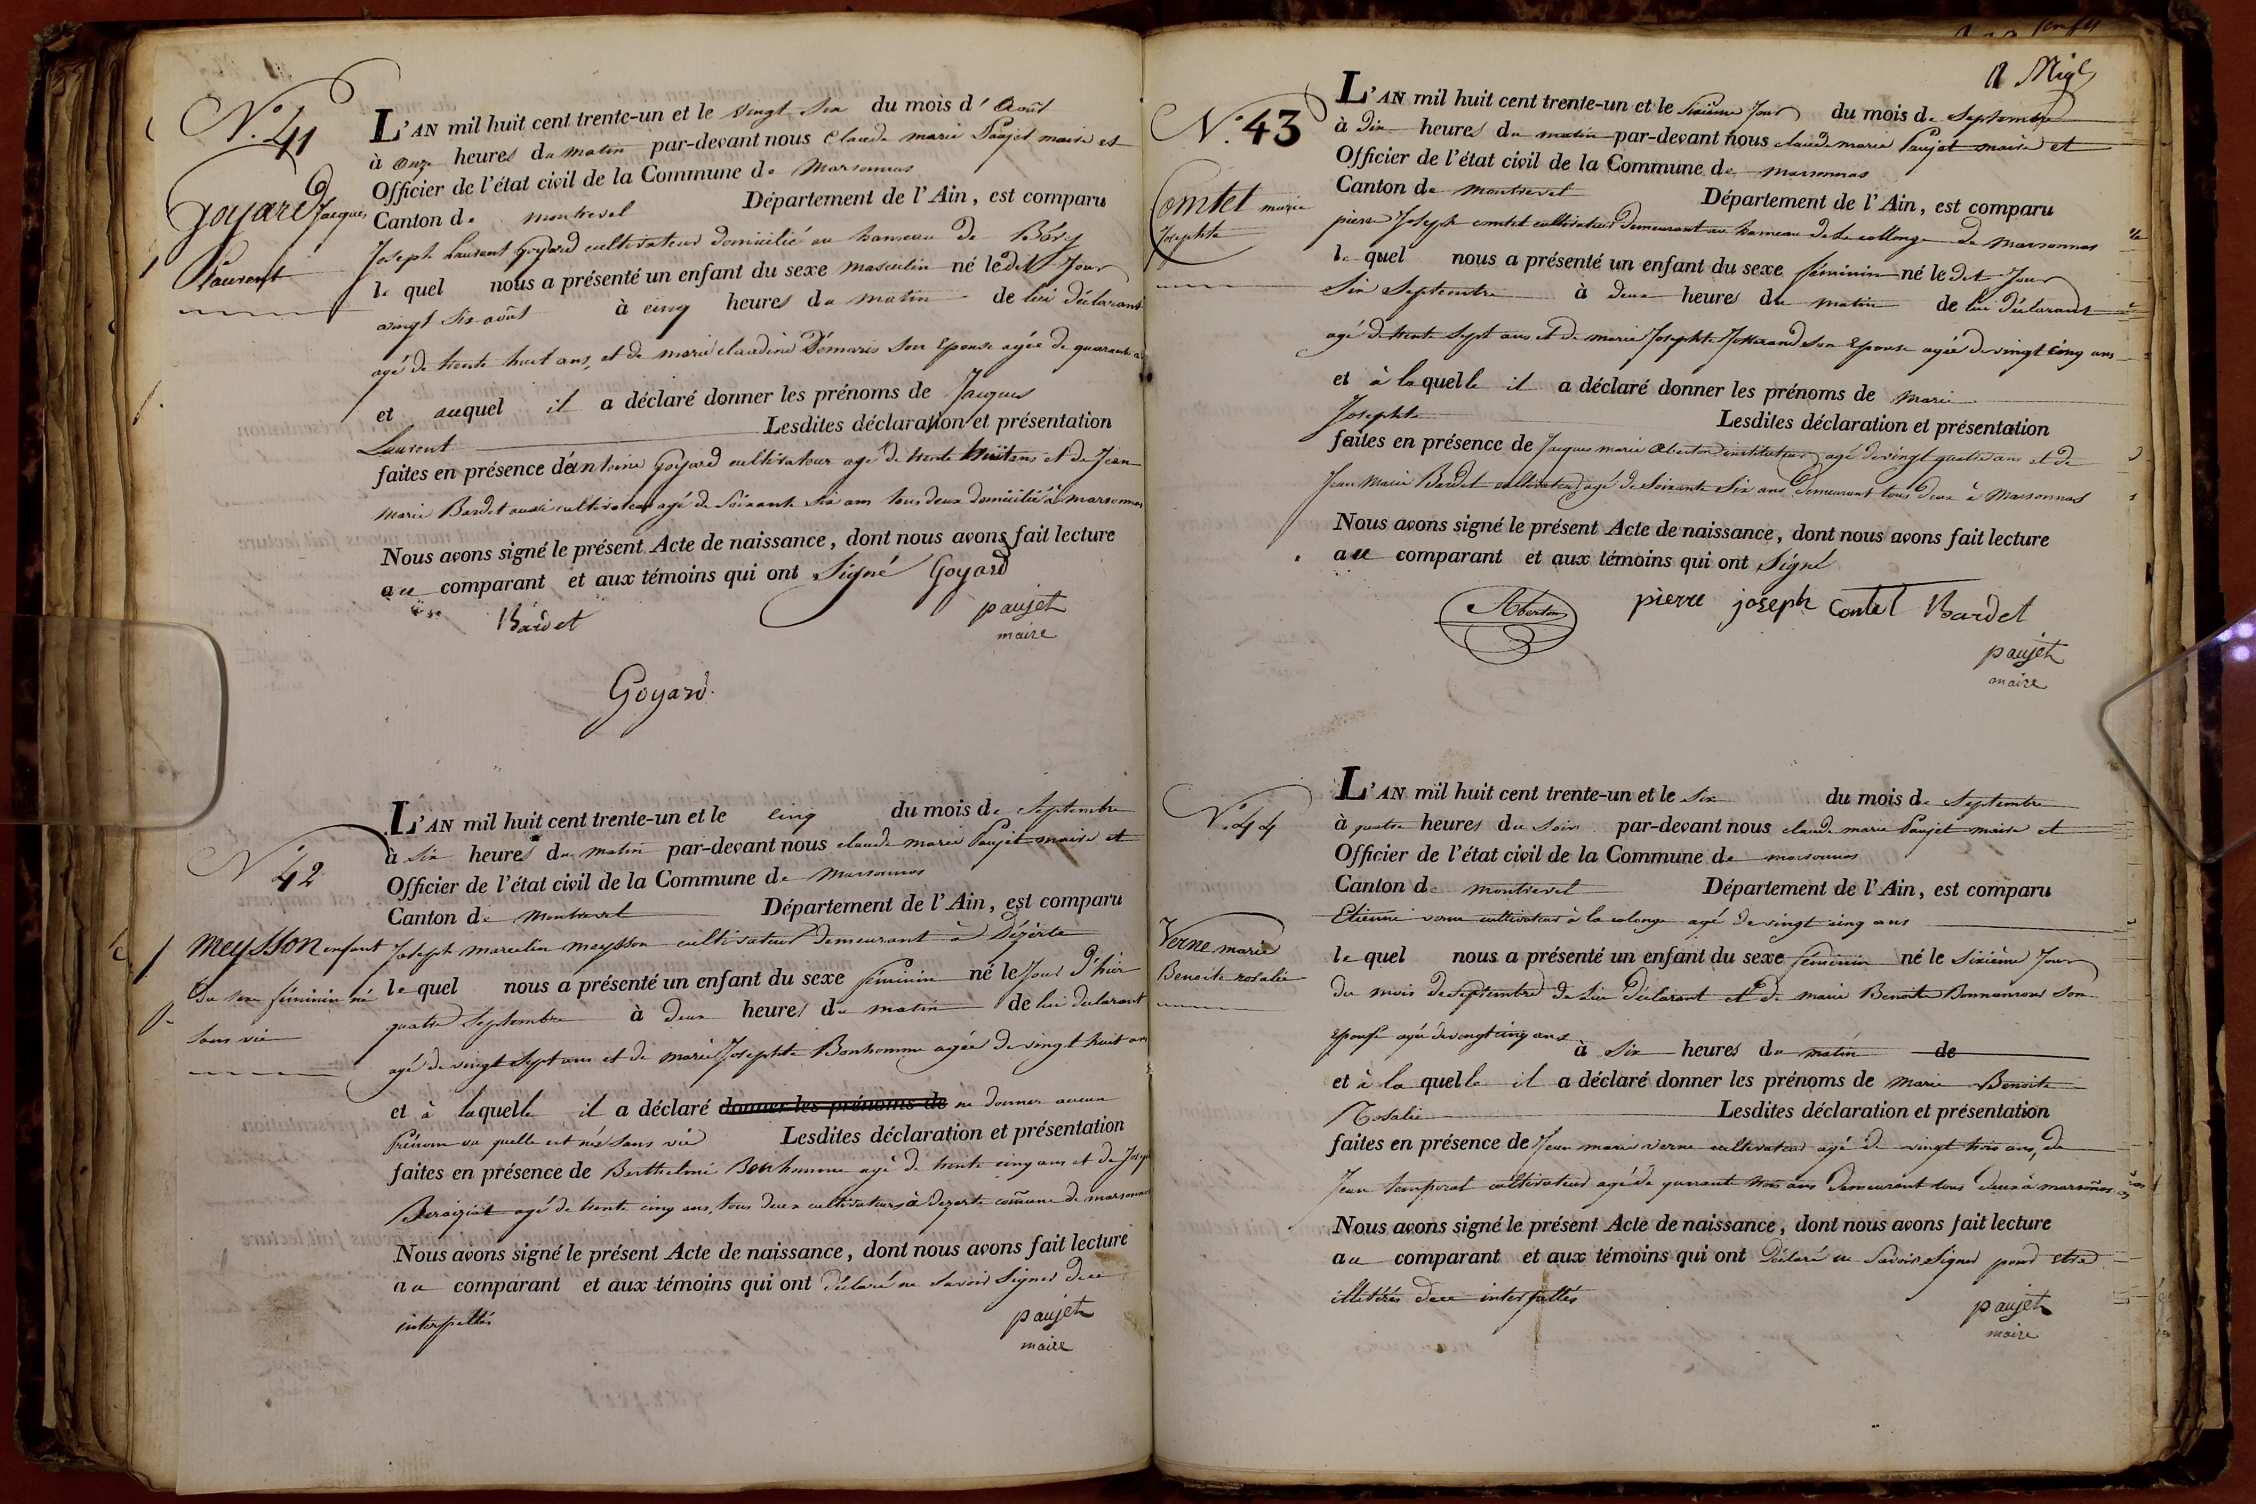 N.° 41
Goyard Jacques
Laurent
L'AN mil huit cent trente-un et le vingt six du mois d' Août
à onze heures du matin par-devant nous Claude marie Paujet maire et
Officier de l'état civil de la Commune de marsonnas
Canton de montrevel Département de l'Ain, est comparu
Joseph Laurent Goyard cultivateur domicilié au hameau de Béry
le quel nous a présenté un enfant du sexe masculin né le dit Jour
vingt six août à cinq heures du matin de lui déclarant
agé de trente huit ans, et de marie claudine Démaris son Epouse agée de quarante
et auquel il a déclaré donner les prénoms de Jacques
Laurent Lesdites déclaration et présentation
faites en présence d'antoine Goyard cultivateur agé de trente huit ans et de Jean
Marie Bardet aussi cultivateur agé de soixante six ans tous deux domicilié à marsonnas
Nous avons signé le présent Acte de naissance, dont nous avons fait lecture
au comparant et aux témoins qui ont Signé Goyard
Bardet paujet
maire
Goyard
N° 42
meysson enfant
du sexe féminin né
sans vie
L'AN mil huit cent trente-un et le cinq du mois de Septembre
à six heures du matin par-devant nous claude marie Paujet maire et
Officier de l'état civil de la Commune de marsonnas
Canton de montrevel Département de l'Ain, est comparu
Joseph marcelin meysson cultivateur demeurant à Dézerte
le quel nous a présenté un enfant du sexe féminin né le Jour d'hier
quatre septembre à deux heures du matin de lui declarant
agé de vingt sept ans et de marie Josephte Bonhomme agée de vingt huit ans
et à laquelle il a déclaré donner les prénoms de ne donner aucun
Prénom vu quelle est née sans vie Lesdites déclaration et présentation
faites en présence de Berthelmé Bonhomme agé de trente cinq ans et de
agé de trente cinq ans, tous deux cultivateurs à dezerte comune de marsonnas
Nous avons signé le présent Acte de naissance, dont nous avons fait lecture
au comparant et aux témoins qui ont déclaré ne Savoir Signer de ce
interpellés paujet
maire
N.° 43
Comtet marie
Josephte
L'AN mil huit cent trente-un et le Sixième Jour du mois de Septembre
à dix heures du matin par-devant nous claude marie Paujet maire et
Officier de l'état civil de la Commune de marsonnas
Canton de montrevel Département de l'Ain, est comparu
pierre Joseph comtet cultivateur demeurant au hameau de la collonge de marsonnas
le quel nous a présenté un enfant du sexe féminin né le dit Jour
Six Septembre à deux heures du matin de lui déclarant
agé de trente sept ans et de marie Josephte son Epouse agée de vingt cinq ans
et à laquelle il a déclaré donner les prénoms de marie
Josephte Lesdites déclaration et présentation
faites en présence de Jacques marie Aberton instituteur agé de vingt quatre ans et de
Jean Marie Bardet cultivateur agé de soixante six ans demeurant tous deux à Marsonnas
Nous avons signé le présent Acte de naissance, dont nous avons fait lecture
au comparant et aux témoins qui ont Signé
Aberton pierre joseph Comtet Bardet
paujet
maire
N.° 44
Verne marie
Benoite rosalie
L'AN mil huit cent trente-un et le six du mois de Septembre
à quatre heures du Soir par-devant nous claude marie Paujet maire et
Officier de l'état civil de la Commune de marsonnas
Canton de montrevel Département de l'Ain, est comparu
Etienne verne cultivateur à la colonge agé de vingt cinq ans
le quel nous a présenté un enfant du sexe féminin né le sixième Jour
du mois de septembre de lui déclarant et de marie Benoite son
Epouse agée de vingt cinq ans à six heures du matin de
et à la quelle il a déclaré donner les prénoms de marie Benoite
Rosalie Lesdites déclaration et présentation
faites en présence de Jean marie verne cultivateur agé de vingt trois ans, de
Jean temporal cultivateur agé de quarante trois ans demeurant tous deux à marsonas
Nous avons signé le présent Acte de naissance, dont nous avons fait lecture
au comparant et aux témoins qui ont déclaré ne Savoir Signer pour etre
illetérés de ce interpellés paujet
maire